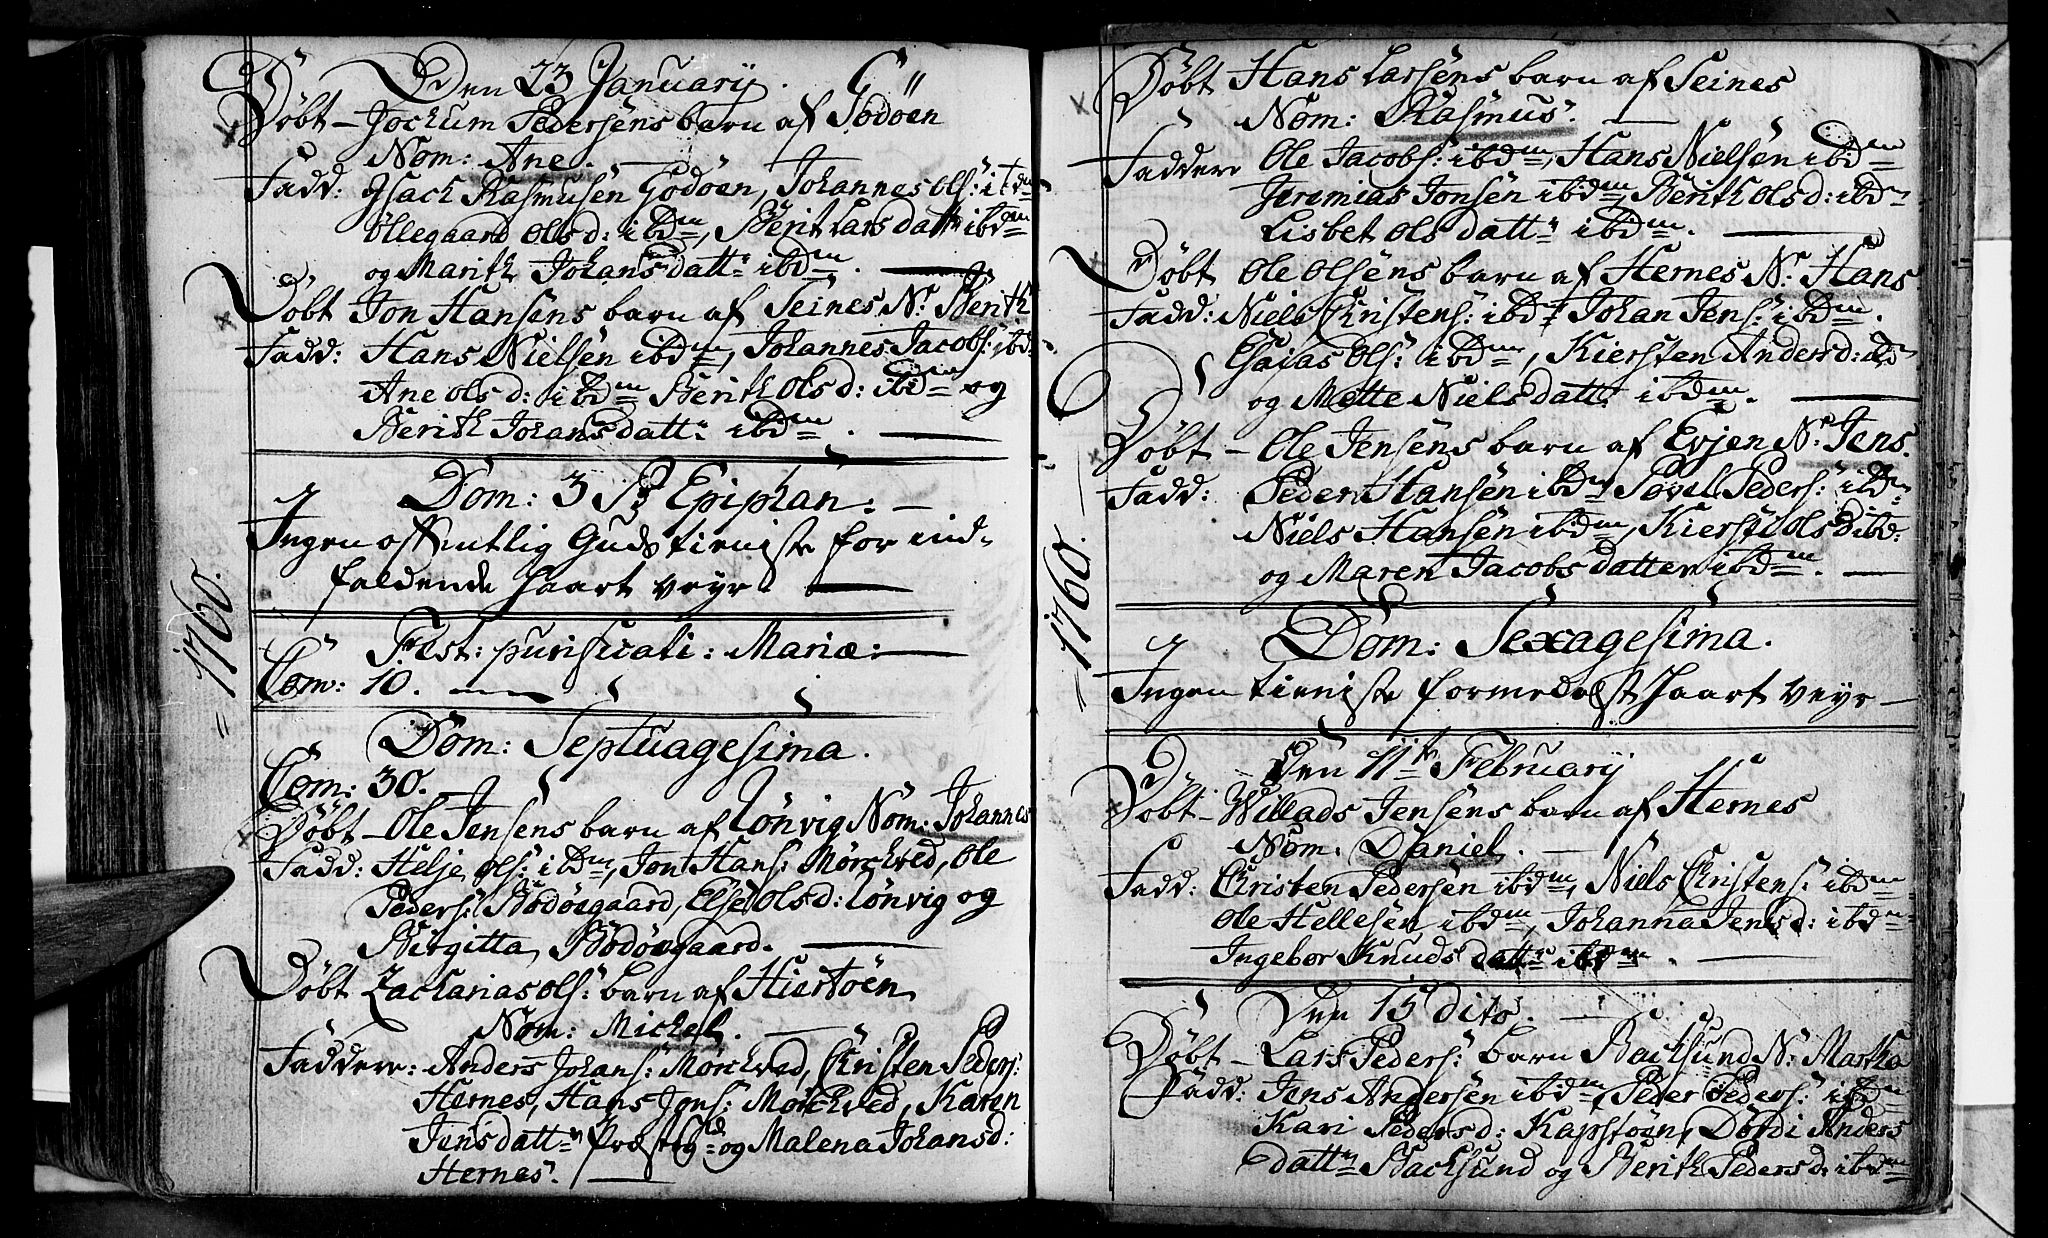 Den 23 January.
Døbt – Jochum Pedersens barn af Godøen
Nom: Ane.
Fadd: Isach Rasmusen Godøen, Johannes Ols: ibdm
Ollegaard Olsd: ibdm, Berit Lars datt ibdm
og Marith Johansdatt: ibdm. —
Døbt Jon Hansens barn af Seines Nr Berith
Fadd: Hans Nielsen ibdm, Johannes Jacobs: ibd.
Ane Olsd: ibdm Berith Olsd: ibdm og
Berith Johansdatt: ibdm. —
Dom: 3 P Epiphan: —
Ingen offentlig Guds tieniste for ind-
faldende haart veyr. —
Fest: purificati: Mariæ: —
Com: 10. —
Dom: Septuagesima.
Com: 30. —
Døbt – Ole Jensens barn af Lønvig Nom: Johannes
Fadd: Helje Ols: ibdm, Jon Hans: Mørchved, Ole
Peders: Bodøegaard, Else Olsd: Lønvig og
Birgitta Bodøegaard. —
Døbt Zacharias Ols: barn af Hiertøen
Nom: Michel. —
Faddere: Anders Johans: Mørchved, Christen Peders:
Hernes, Hans Jons: Mørchved, Karen
Jensdattr præstegd og Malena Johansd:
Hernes. —
= 1760.
Døbt Hans Larsens barn af Seines
Nom: Rasmus. —
Faddere Ole Jacobs: ibdm, Hans Nielsen ibdm
Jeremias Jonsen ibdm, Berith Olsd: ibd
Lisbet Ols datt: ibdm. —
Døbt Ole Olsens barn af Hernes Nr Hans
Fadd: Niels Christens: ibdm Johan Jens: ibdm.
Esaias Ols: ibdm, Kiersten Andersd: ib
og Mette Niels datt: ibdm. —
Døbt – Ole Jensens barn af Evjen Nr Jens.
Fadd: Peder Hansen ibdm, Povel Peders: ibdm
Niels Hansen ibdm, Kiersti Olsd ibd:
og Maren Jacobs datter ibdm. —
Dom: Sexagesima.
Ingen tieniste formedelst haart veyr —
Den 11te February
Døbt – Willads Jensens barn af Hernes
Nom. Daniel. —
Fadd: Christen Pedersen ibdm, Niels Christens: ibdm
Ole Hellesen ibdm, Johanna Jensd: ibdm
Ingebor Knuds datt: ibdm. —
Den 15 dito. —
Døbt – Lars Peders: barn Bachsund N: Martha
Fadd: Jens Andersen ibdm, Peder Peders: ibdm
Kari Pedersd: Kapstøen, Dordi Anders
datt: Bachsund og Berith Pedersd: ibdm
= 1760. —